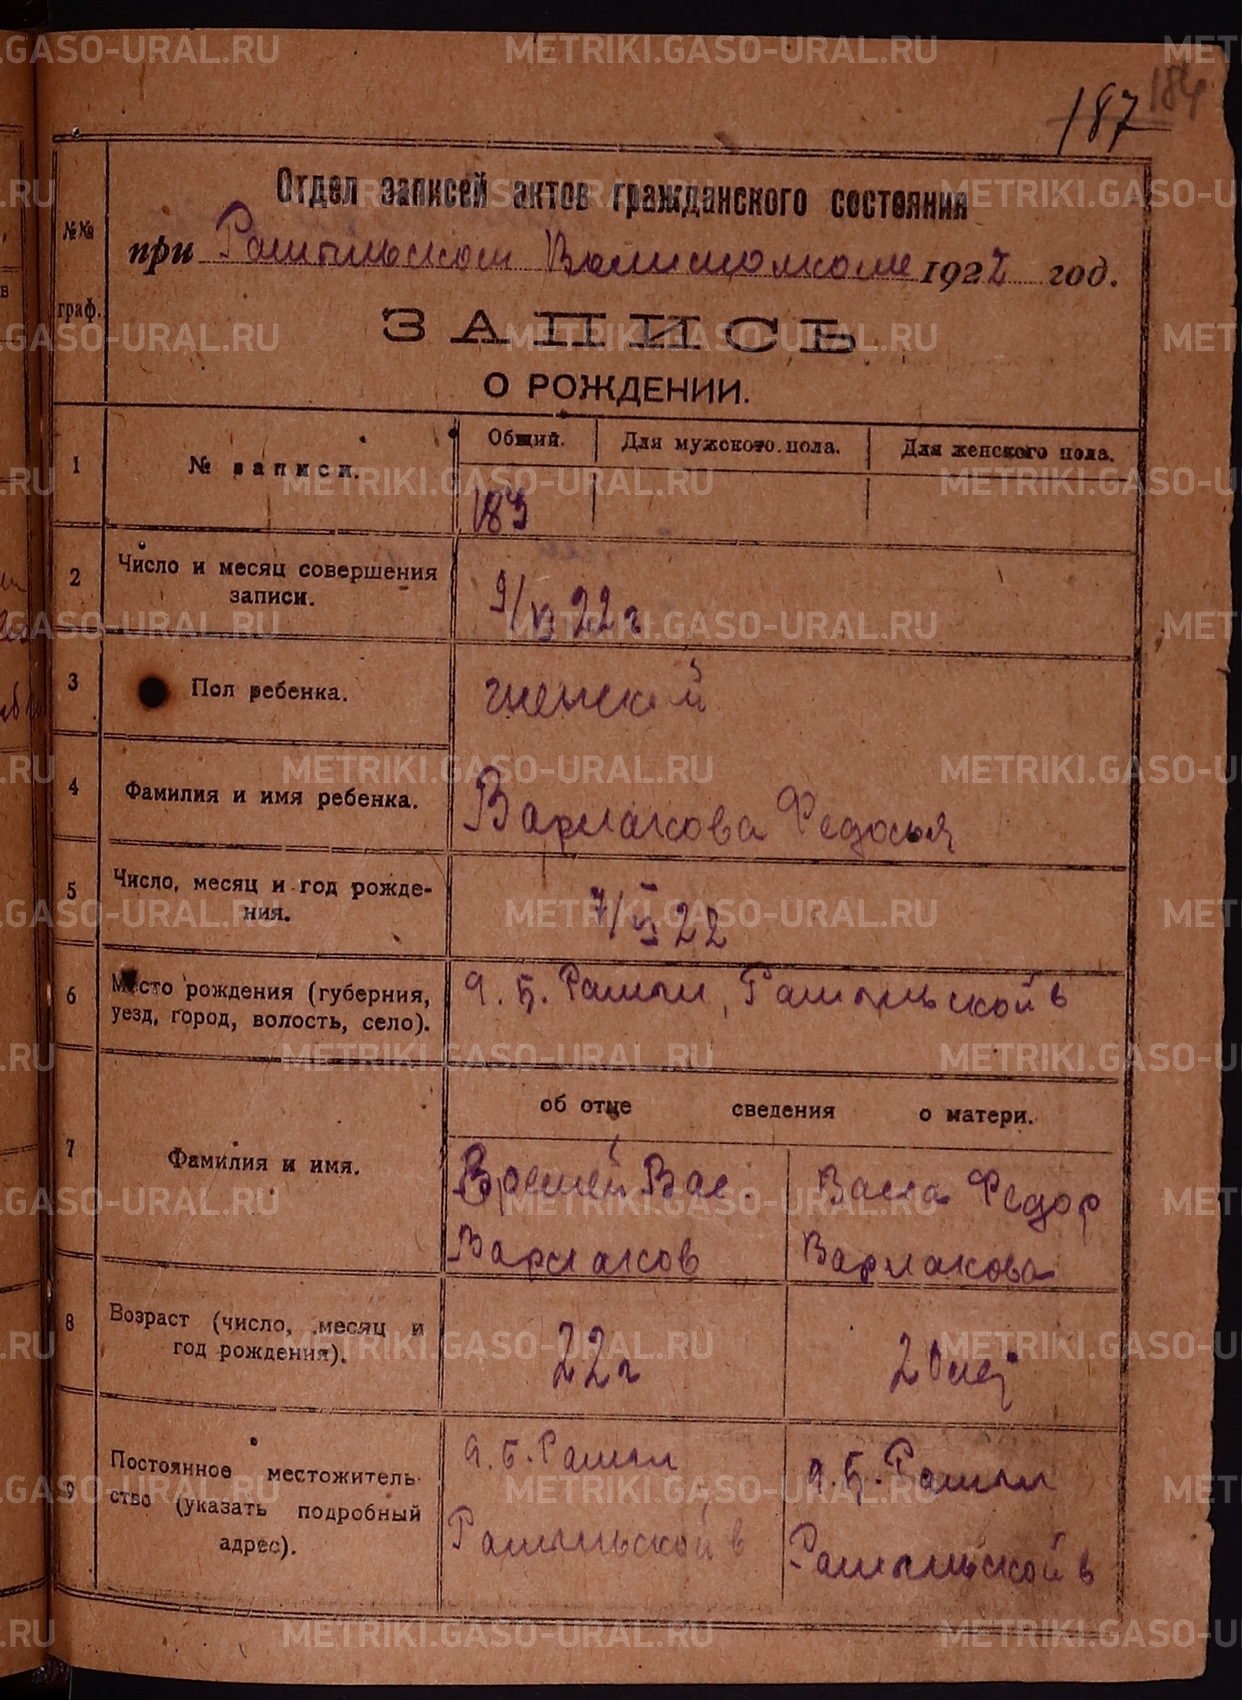 187 184
Отдел записей актов гражданского состояния
№№ граф.
при Рамыльском Волисполкоме 1922 год.
ЗАПИСЬ
О РОЖДЕНИИ.
1 № записи. Общий. Для мужского пола. Для женского пола.
183
2 Число и месяц совершения
записи.
9/VI 22 г
3 Пол ребенка. женский
4 Фамилия и имя ребенка. Варлакова Федосья
5 Число, месяц и год рожде-
ния.
7/VI 22
6 Место рождения (губерния,
уезд, город, волость, село).
об отце сведения о матери.
7 Фамилия и имя.
Вас. Федор
Варлаков Варлакова
8 Возраст (число, месяц и
год рождения).
22 г 20 лет
9 Постоянное местожитель-
ство (указать подробный
адрес).
METRIKI.GASO-URAL.RU